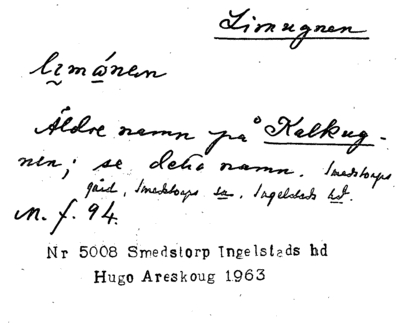 Limugnen
lìmǻnen
Äldre namn på Kalkug-
nen; se detta namn. Smedstorps
gård, Smedstorps sn, Ingelstads hd.
M. f. 94.
Nr 5008 Smedstorp Ingelstads hd
Hugo Areskoug 1963